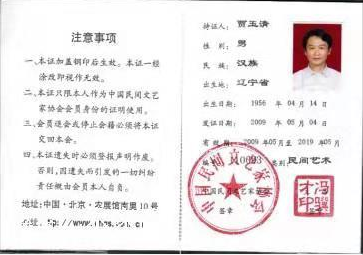 注意事项
一、本证加盖钢印后生效。本证一经
涂改即视作无效。
二、本证只限本人作为中国民间文艺
家协会会员身份的证明使用。
三、会员退会或停止会籍必须将本证
交回本会。
四、本证遗失时必须登报声明作废。
否则,因遗失而引发的一切纠纷
责任概由会员本人自负。
地址:中国·北京·农展馆南里10号
持证人: 贾玉清
性 别: 男
民 族: 汉族
出生地: 辽宁省
出生日期: 1956 年 04 月 14 日
发证日期: 2009 年 05 月 04 日
有效期: 2009 年 05 月 至 2019 年 05 月
类别: 民间艺术
中国民间文艺家协会
签章
签章